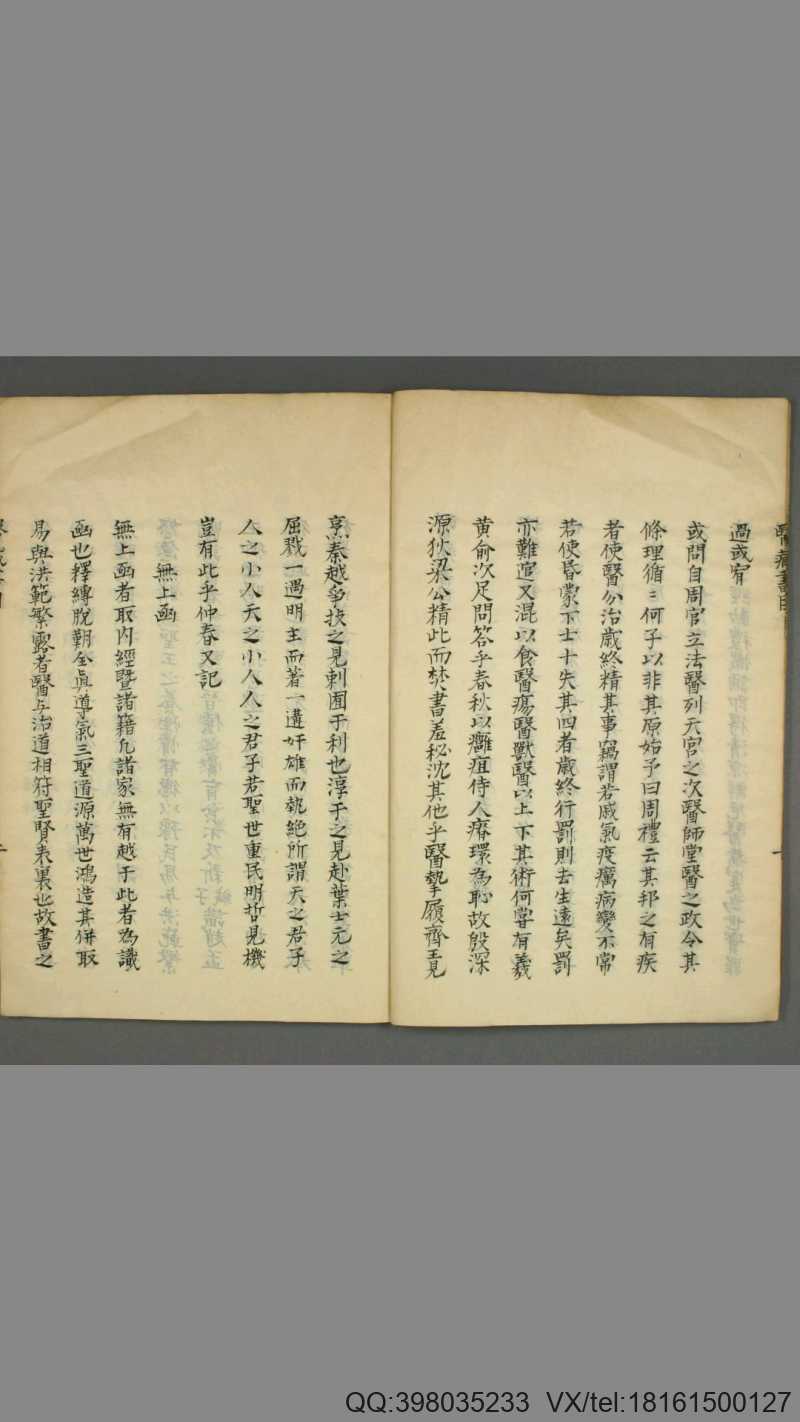 醫藏書目
過或宥
或問自周官立法醫列天官之次醫師堂醫之政令其
條理循〻何子以非其原始予曰周禮云其邦之有疾
者使醫分治歲終精其事竊謂若戚氣疫癘病變不常
若使昏蒙下士十失其四者歲終行罰則去生遠矣罰
亦難逭又混以食醫瘍醫獸醫以上下其術何嘗有羲
黃俞次足問答乎春秋以癰疽侍人瘠環為恥故殷深
源狄梁公精此而焚書羞秘沈其他乎醫摯履齊王見
烹秦越多技之見刺囿于利也淳于之見赴葉士元之
屈戮一遇明主而著一遘奸雄而執絕所謂天之君子
人之小人天之小人人之君子若聖世重民明哲見機
豈有此乎仲春又記
無上函
無上函者取內經暨諸籍凡諸家無有越于此者為識
函也釋縛脫艱全眞導氣三聖道源萬世鴻造其併取
易與洪範繁露者醫与治道相符聖賢表裏也故書之
QQ:398035233 VX/tel:18161500127